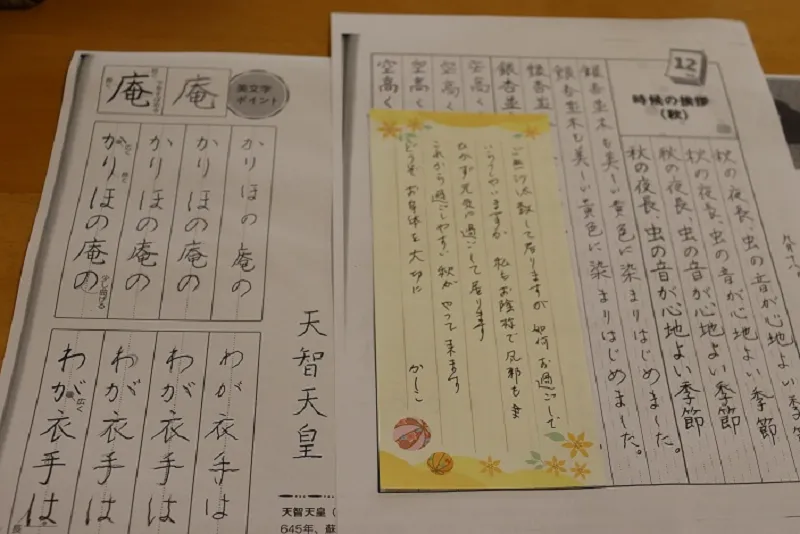 庵
庵
美文字
ポイント
かりほの庵の
かりほの庵の
かりほの庵の
かりほの庵の
少し曲げる
わが衣手は
わが衣手は
わが衣手は
わが衣手は
広く
天智天皇
天智天皇（
645年、蘇
12
時候の挨拶
（秋）
秋の夜長、虫の音が心地よい季節
秋の夜長、虫の音が心地よい季節
秋の夜長、虫の音が心地よい季節
秋の夜長、虫の音が心地よい季節
銀杏並木も美しい黄色に染まりはじめました。
銀杏並木も美しい黄色に染まりはじめました。
銀杏並
銀杏並
空高く
空高く
空高く
空高く
ご無沙汰致して居りますが 如何お過ごしで
いらっしゃいますか 私もお陰様で
元気に過ごして居ります
これから過ごしやすい秋が やって来ます
どうぞ お身体を大切に
かしこ